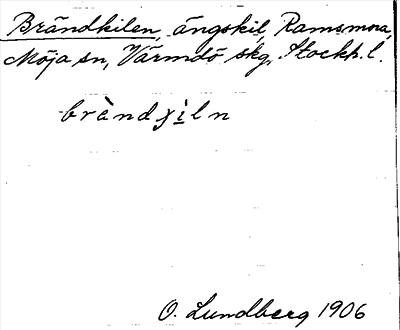 Brändkilen, ängskil, Ramsmora,
Möja sn, Värmdö skg, Stockh. l.
bràndχìln
O. Lundberg 1906